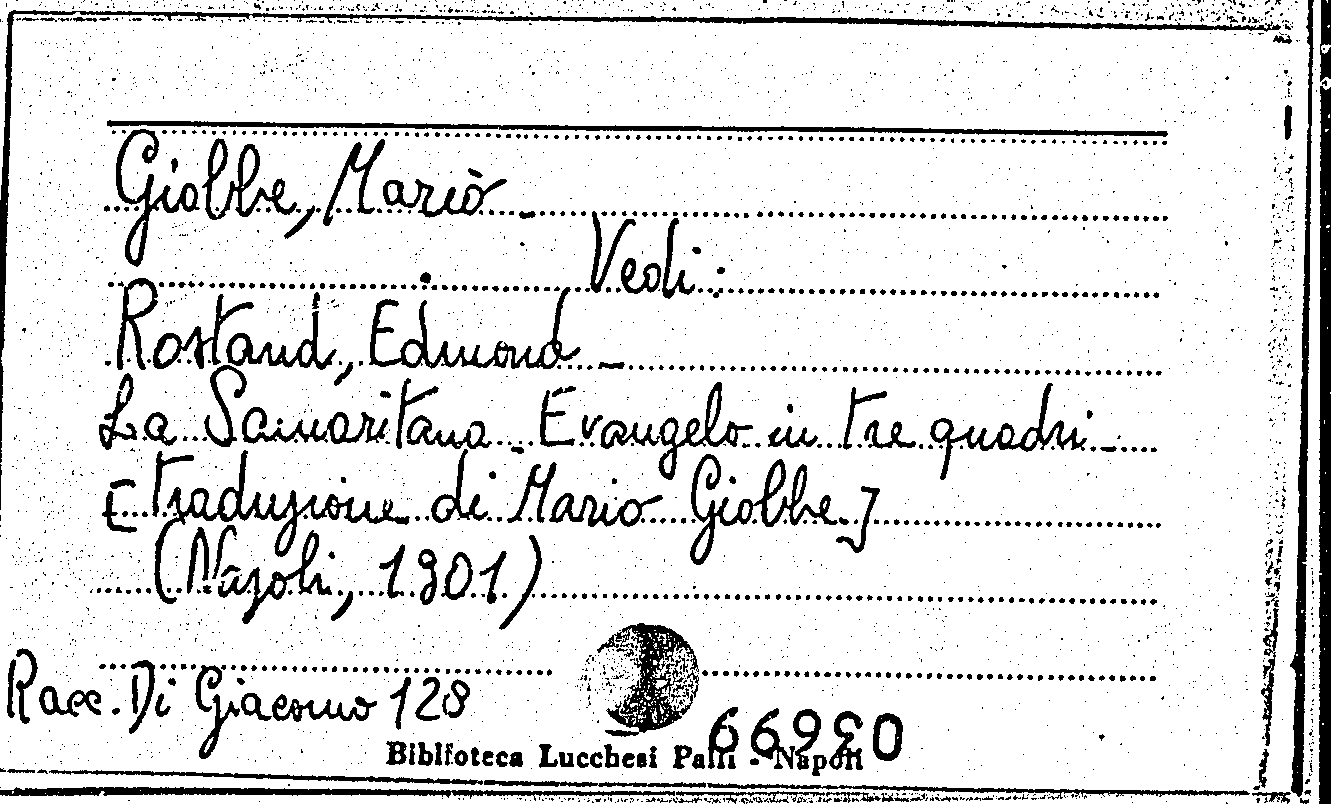 Giobbe, Mario -
Vedi:
Rostand, Edmond -
La Samaritana - Evangelo in tre quadri -
[traduzione di Mario Giobbe]
(Napoli, 1901)
Racc. Di Giacomo 128
Biblioteca Lucchesi Palli - Napoli